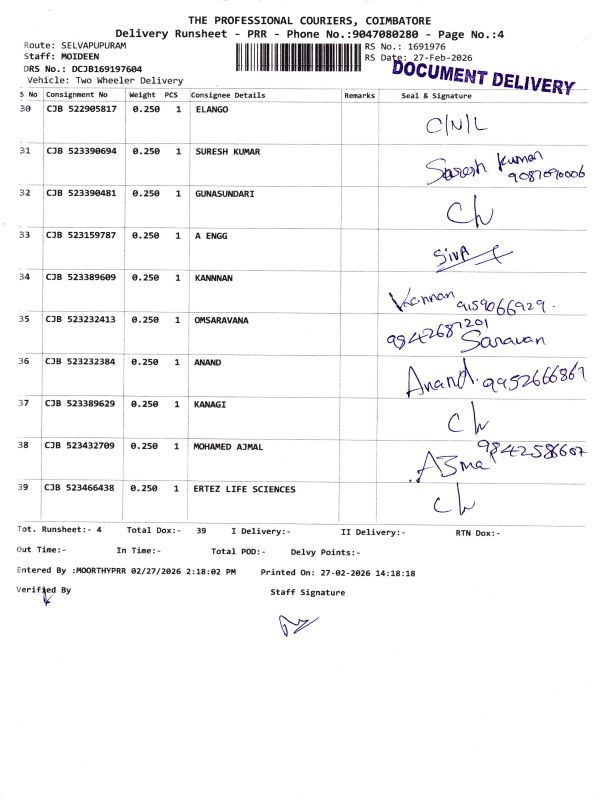 THE PROFESSIONAL COURIERS, COIMBATORE
Delivery Runsheet - PRR - Phone No.:9047080280 - Page No.:4
Route: SELVAPUPURAM
RS No.: 1691976
Staff: MOIDEEN
RS Date: 27-Feb-2026
DRS No.: DCJB169197604
DOCUMENT DELIVERY
Vehicle: Two Wheeler Delivery
S No Consignment No Weight PCS Consignee Details Remarks Seal & Signature
30 CJB 522905817 0.250 1 ELANGO C/N/L
31 CJB 523390694 0.250 1 SURESH KUMAR Suresh Kumar
9087090006
32 CJB 523390481 0.250 1 GUNASUNDARI
33 CJB 523159787 0.250 1 A ENGG Siva
34 CJB 523389609 0.250 1 KANNNAN Kannan 9159066929.
35 CJB 523232413 0.250 1 OMSARAVANA 9842687201
Saravan
36 CJB 523232384 0.250 1 ANAND Anand. 9952666869
37 CJB 523389629 0.250 1 KANAGI
38 CJB 523432709 0.250 1 MOHAMED AJMAL 9842586607
39 CJB 523466438 0.250 1 ERTEZ LIFE SCIENCES
Tot. Runsheet:- 4 Total Dox:- 39 I Delivery:- II Delivery:- RTN Dox:-
Out Time:- In Time:- Total POD:- Delvy Points:-
Entered By :MOORTHYPRR 02/27/2026 2:18:02 PM Printed On: 27-02-2026 14:18:18
Verified By Staff Signature